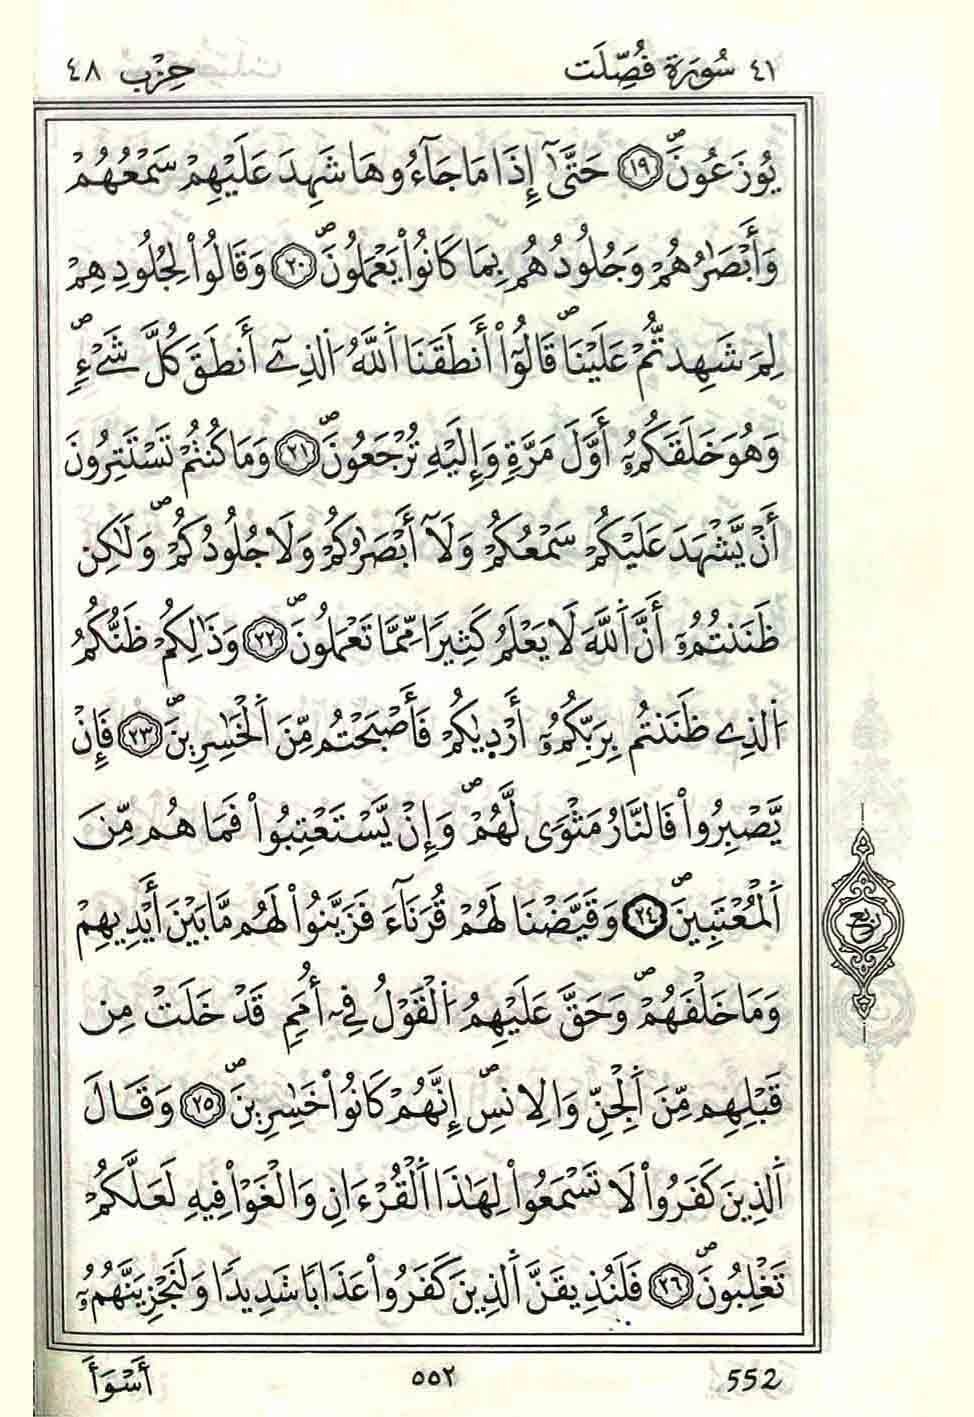 ٤١ سُورَة فُصِّلَت حِزْب ٤٨
يُوزَعُونَۖ ١٩ حَتَّىٰٓ إِذَا مَا جَآءُوهَا شَهِدَ عَلَيْهِمْ سَمْعُهُمْ
وَأَبْصَٰرُهُمْ وَجُلُودُهُم بِمَا كَانُواْ يَعْمَلُونَۖ ٢٠ وَقَالُواْ لِجُلُودِهِمْ
لِمَ شَهِدتُّمْ عَلَيْنَاۖ قَالُوٓاْ أَنطَقَنَا اَ۬للَّهُ اُ۬لذِےٓ أَنطَقَ كُلَّ شَےْءٖۖ
وَهُوَ خَلَقَكُمُۥٓ أَوَّلَ مَرَّةٖ وَإِلَيْهِ تُرْجَعُونَۖ ٢١ وَمَا كُنتُمْ تَسْتَتِرُونَ
أَنْ يَّشْهَدَ عَلَيْكُمْ سَمْعُكُمْ وَلَآ أَبْصَٰرُكُمْ وَلَا جُلُودُكُمْۖ وَلَٰكِن
ظَنَنتُمُۥٓ أَنَّ اَ۬للَّهَ لَا يَعْلَمُ كَثِيراٗ مِّمَّا تَعْمَلُونَۖ ٢٢ وَذَٰلِكُمْ ظَنُّكُمُ
اُ۬لذِے ظَنَنتُم بِرَبِّكُمُۥٓ أَرْد۪يٰكُمْ فَأَصْبَحْتُم مِّنَ اَ۬لْخَٰسِرِينَۖ ٢٣ فَإِنْ
يَّصْبِرُواْ فَالنَّارُ مَثْوىٗ لَّهُمْۖ وَإِنْ يَّسْتَعْتِبُواْ فَمَا هُم مِّنَ
اَ۬لْمُعْتَبِينَۖ ٢٤ وَقَيَّضْنَا لَهُمْ قُرَنَآءَ فَزَيَّنُواْ لَهُم مَّا بَيْنَ أَيْدِيهِمْ
ربع
وَمَا خَلْفَهُمْۖ وَحَقَّ عَلَيْهِمُ اُ۬لْقَوْلُ فِےٓ أُمَمٖ قَدْ خَلَتْ مِن
قَبْلِهِم مِّنَ اَ۬لْجِنِّ وَالِانسِۖ إِنَّهُمْ كَانُواْ خَٰسِرِينَۖ ٢٥ وَقَالَ
اَ۬لذِينَ كَفَرُواْ لَا تَسْمَعُواْ لِهَٰذَا اَ۬لْقُرْءَانِ وَالْغَوْاْ فِيهِ لَعَلَّكُمْ
تَغْلِبُونَۖ ٢٦ فَلَنُذِيقَنَّ اَ۬لذِينَ كَفَرُواْ عَذَاباٗ شَدِيداٗ وَلَنَجْزِيَنَّهُمُۥٓ
552 ٥٥٢ أَسْوَأَ